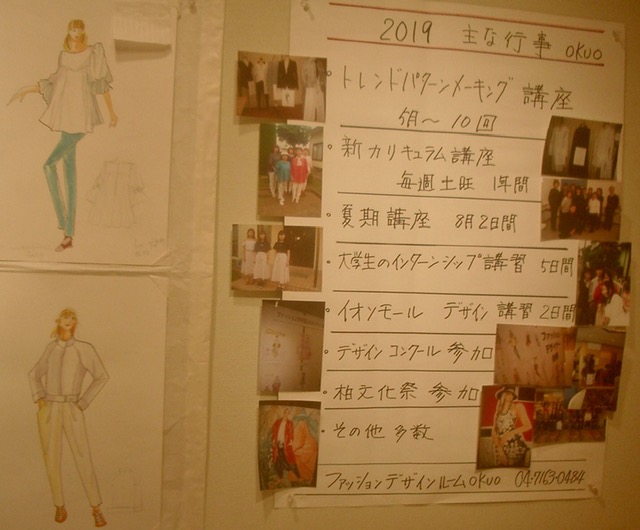 2019 主な行事 OKUO
・トレンドパターンメーキング 講座
月〜 10回
・新カリキュラム講座
毎週土旺 1年間
・夏期講座 8月2日間
・大学生のインターンシップ講習 5日間
・イオンモール デザイン 講習 2日間
・デザイン コンクール 参加
・柏文化祭 参加
・その他 多数
ファッションデザインルームOKUO 04-7163-0484